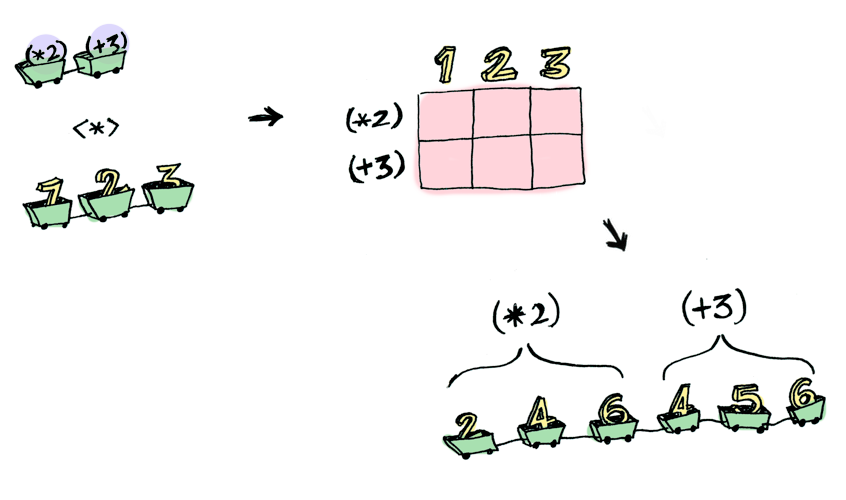 (*2) (+3)
<*>
1 2 3
1 2 3
(*2)
(+3)
(*2) (+3)
2 4 6 4 5 6